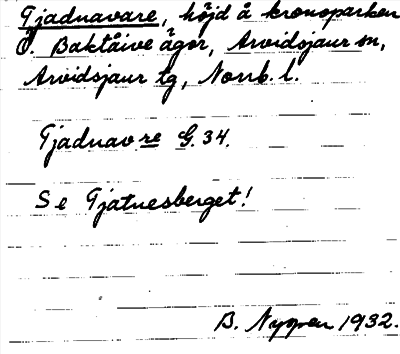 Tjadnavare, höjd å kronoparken
Ö. Baktåive ägor, Arvidsjaur sn,
Arvidsjaur tg, Norrb. l.
Tjadnavare G. 34.
Se Tjatnesberget!
B. Nygren 1932.